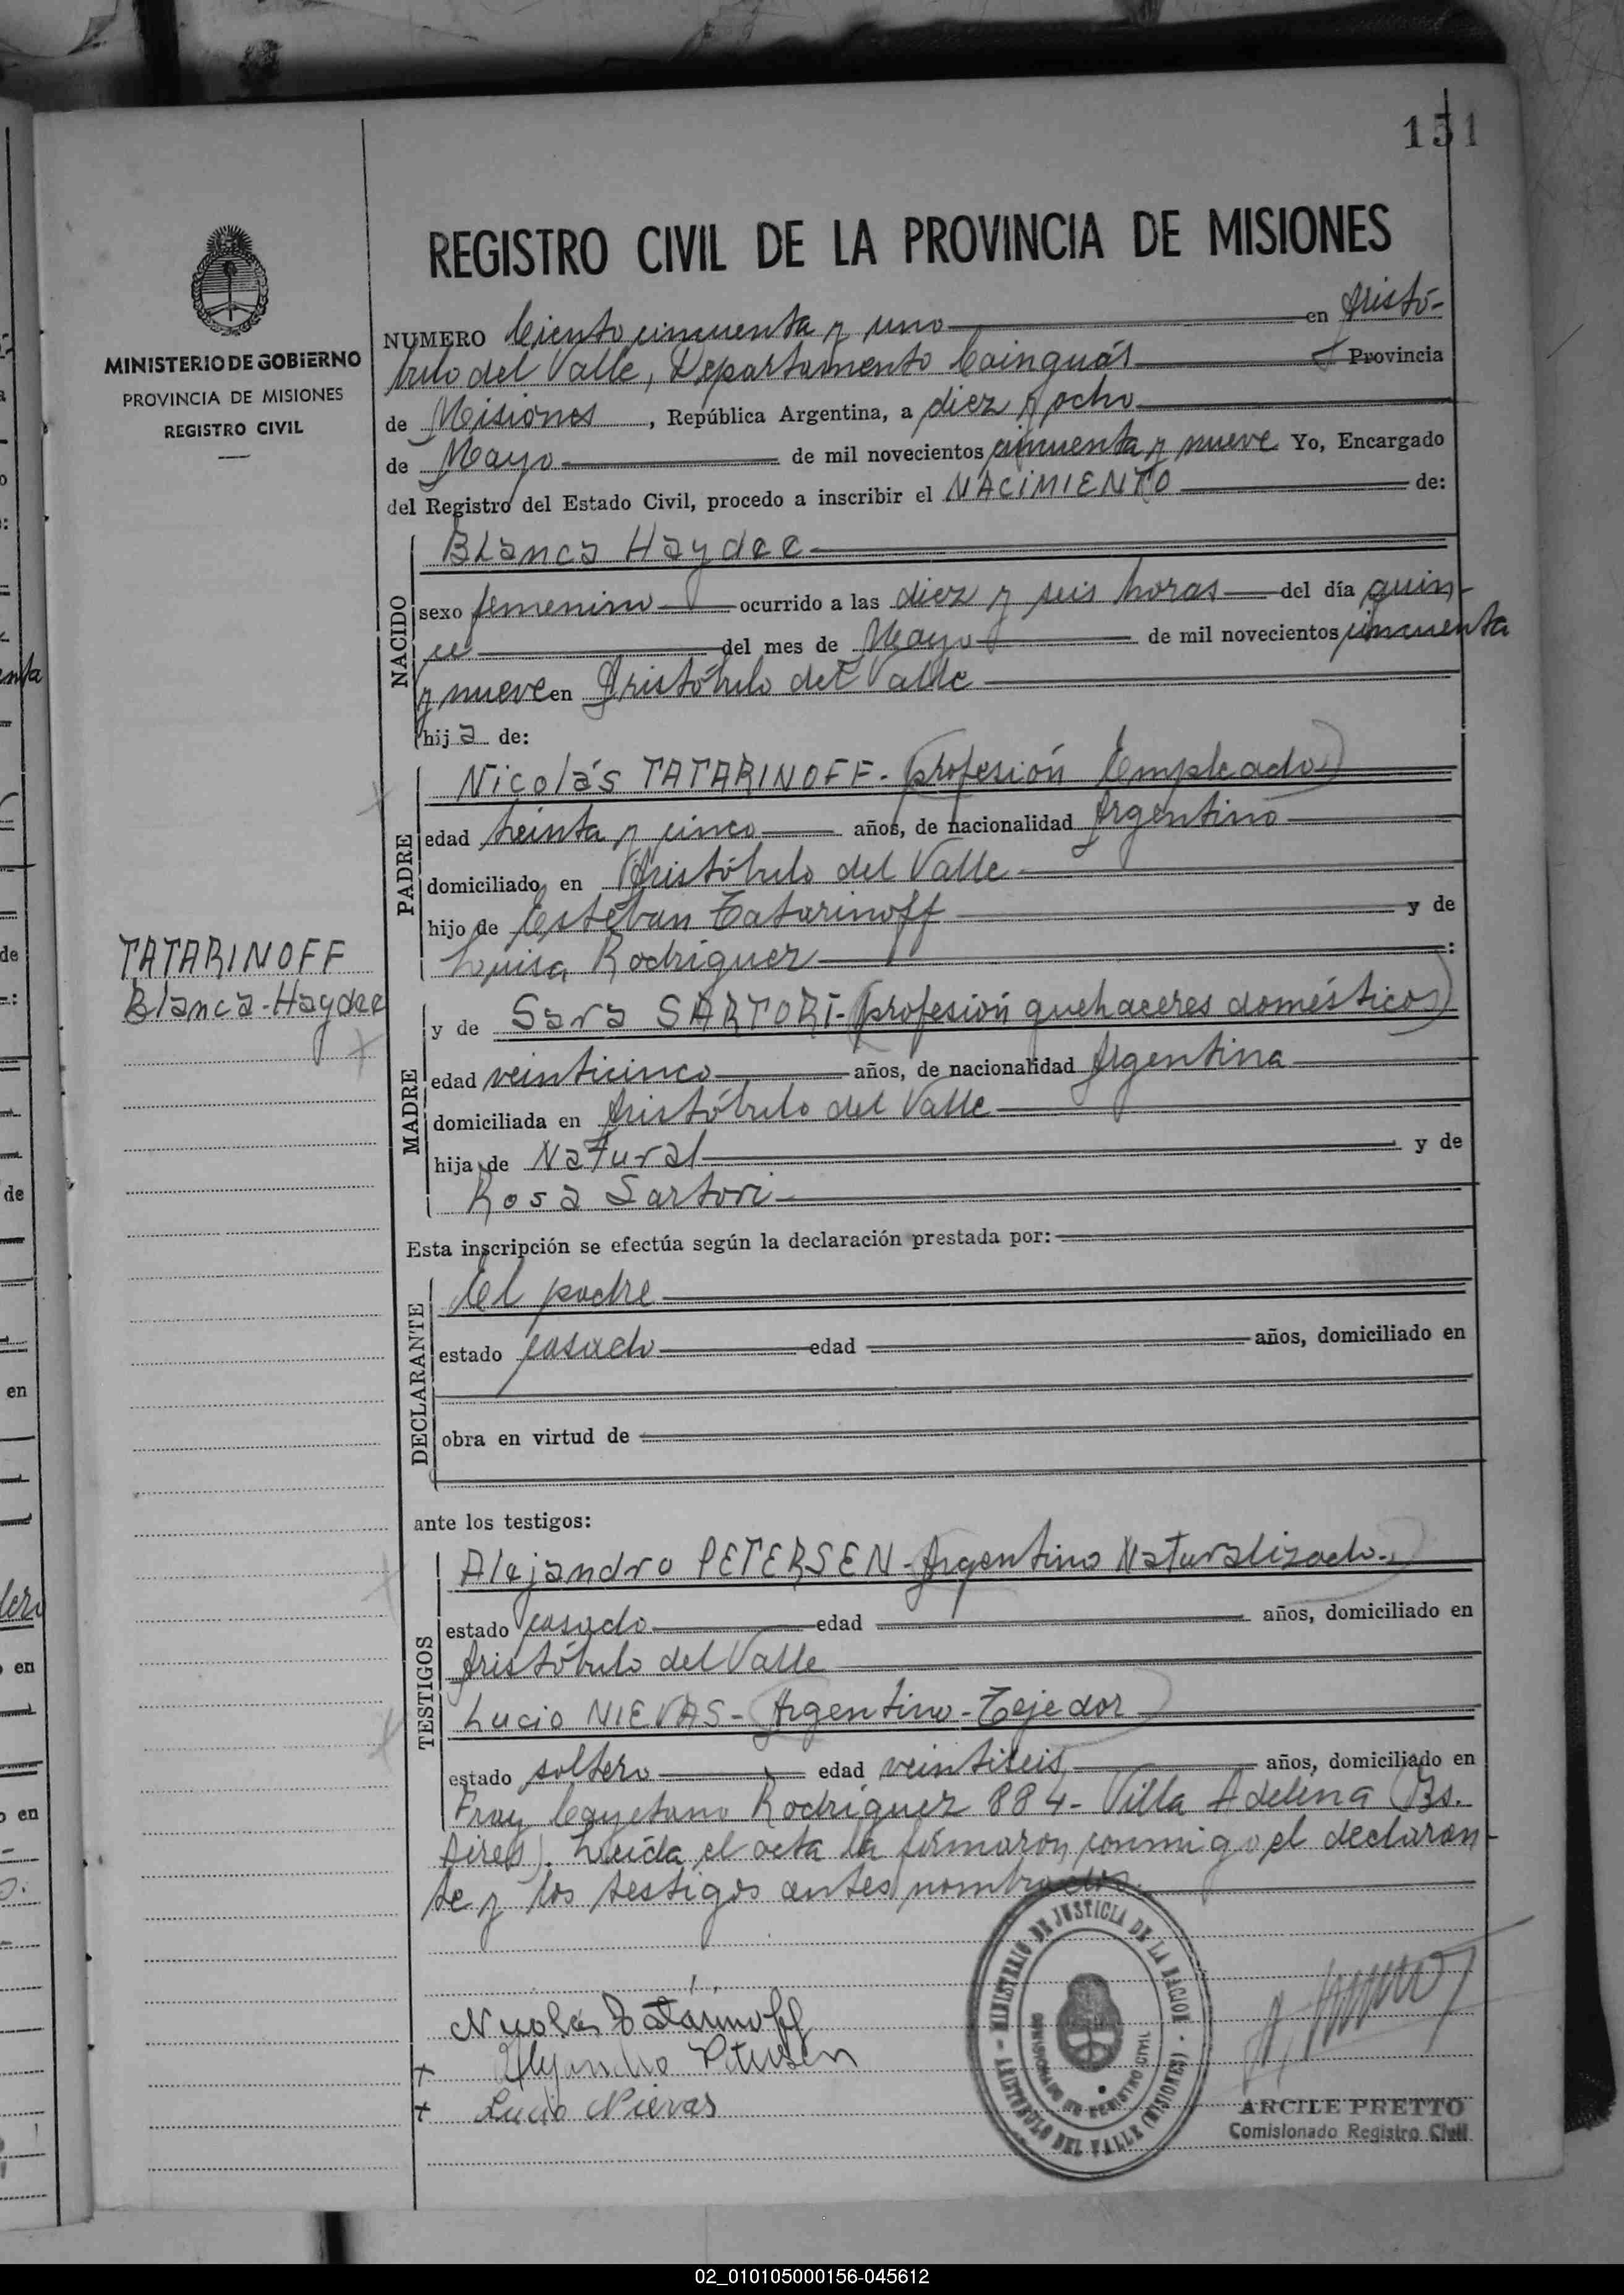 151
REGISTRO CIVIL DE LA PROVINCIA DE MISIONES
MINISTERIO DE GOBIERNO
PROVINCIA DE MISIONES
REGISTRO CIVIL
NUMERO Ciento cincuenta y uno en Aristó-
bulo del Valle, Departamento Cainguás Provincia
de Misiones, República Argentina, a diez y ocho
de Mayo de mil novecientos cincuenta y nueve Yo, Encargado
del Registro del Estado Civil, procedo a inscribir el NACIMIENTO de:
NACIDO
Blanca Haydee
sexo femenino ocurrido a las diez y seis horas del día quin-
ce del mes de Mayo de mil novecientos cincuenta
y nueve en Aristóbulo del Valle
hija de:
PADRE
Nicolás TATARINOFF- (profesión Empleado)
edad treinta y cinco años, de nacionalidad Argentino
domiciliado en Aristóbulo del Valle
hijo de Estéban Tatarinoff y de
Luisa Rodríguez :
TATARINOFF
Blanca-Haydee
MADRE
y de Sara SARTORI-(profesión quehaceres domésticos)
edad veinticinco años, de nacionalidad Argentina
domiciliada en Aristóbulo del Valle
hija de Natural y de
Rosa Sartori
Esta inscripción se efectúa según la declaración prestada por:
DECLARANTE
El padre
estado casado edad años, domiciliado en
obra en virtud de
ante los testigos:
TESTIGOS
Alejandro PETERSEN-Argentino Naturalizado.
estado casado edad años, domiciliado en
Aristóbulo del Valle
Lucio NIEVAS- Argentino-Tejedor
estado soltero edad veintiseis años, domiciliado en
Fray Cayetano Rodríguez 884- Villa Adelina (Bs.
Aires). Leída el acta la firmaron conmigo el declaran-
te y los testigos antes nombrados.
Nicolás Tatarinoff
+ Alejandro Petersen
+ Lucio Nievas
MINISTERIO DE JUSTICIA DE LA NACION
ARISTOBULO DEL VALLE (MISIONES)
ARCILE PRETTO
Comisionado Registro Civil
02_010105000156-045612